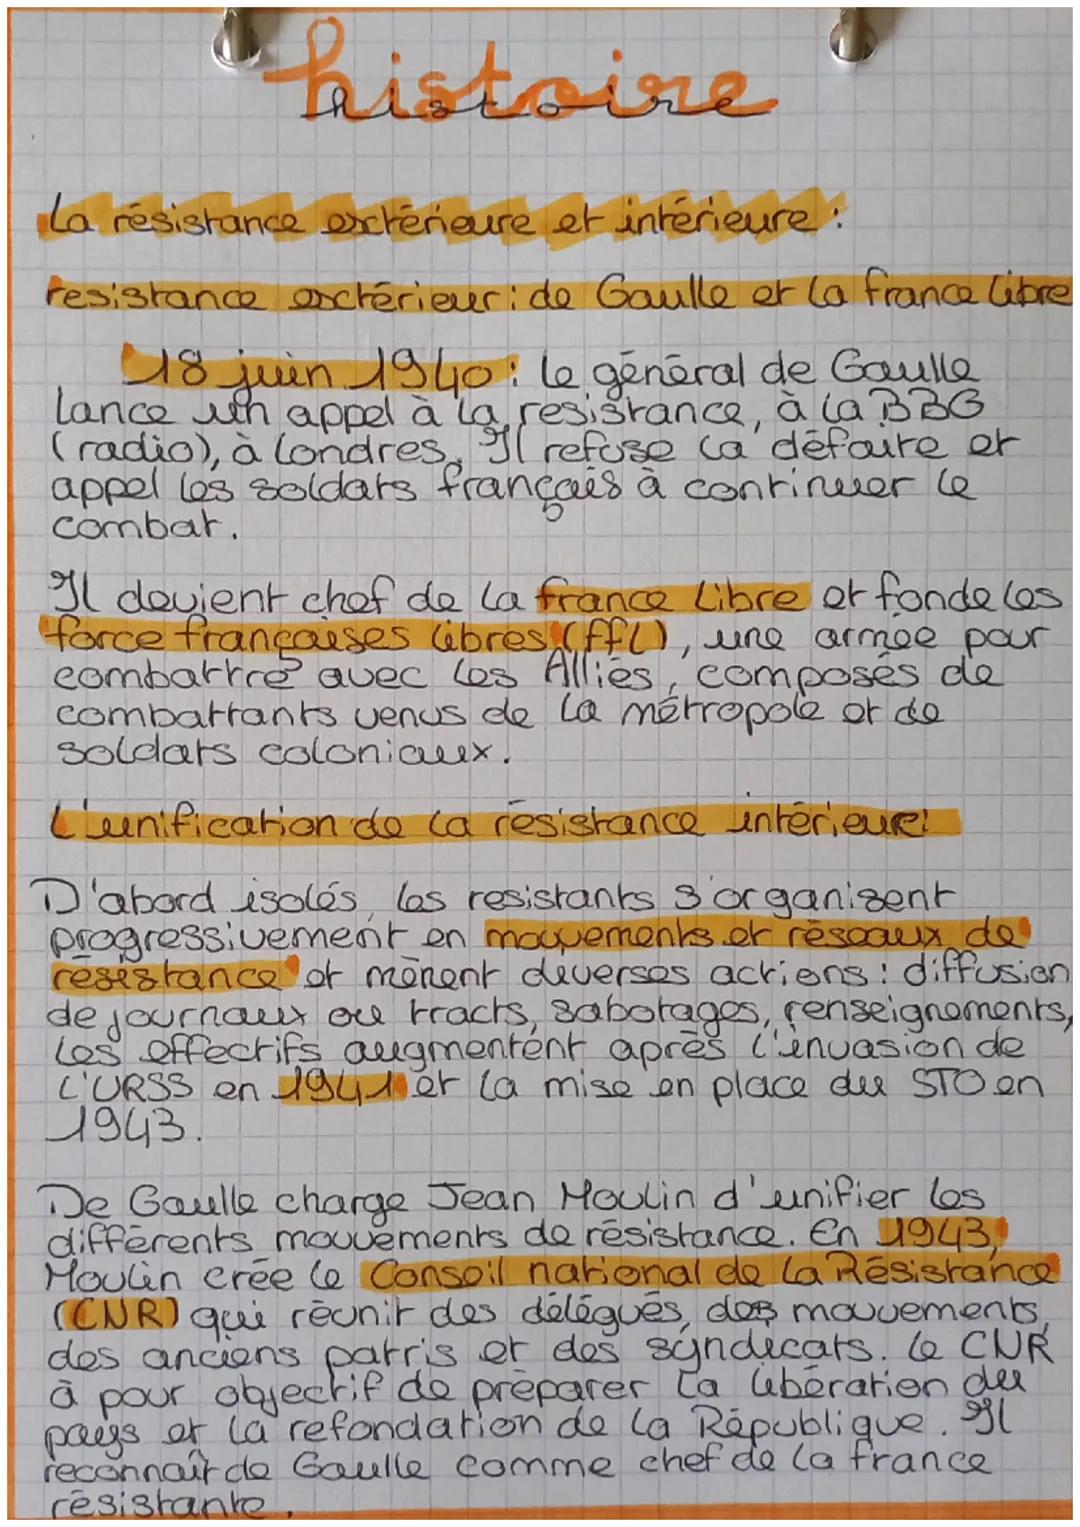 histoire
histoire
La résistance exctérieure et intérieure :
resistance exctérieur : de Gaulle et la france libre
18 juin 1940 : le général de Gaulle
lance un appel à la resistance, à la BBG
(radio), à londres. Il refuse la défaite et
appel les soldats français à continuer le
combat.
Il devient chef de la france Libre et fonde les
force françaises libres (ffl), une armée pour
combattre avec les Alliés, composés de
combattants venus de la métropole et de
soldats coloniaux.
L'unification de la résistance intérieur:
D'abord isolés, les resistants s'organisent
progressivement en mouvements et réseaux de
résistance et mènent diverses actions : diffusion
de journaux ou tracts, sabotages, renseignements,
les effectifs augmentent après l'invasion de
l'URSS en 1941 et la mise en place du STO en
1943.
De Gaulle charge Jean Moulin d'unifier les
différents mouvements de résistance. En 1943,
Moulin crée le Conseil national de la Résistance
(CNR) qui réunit des délégués, des mouvements,
des anciens partis et des syndicats. le CNR
à pour objectif de préparer la libération du
pays et la refondation de la République. Il
reconnaît de Gaulle comme chef de la france
résistante.